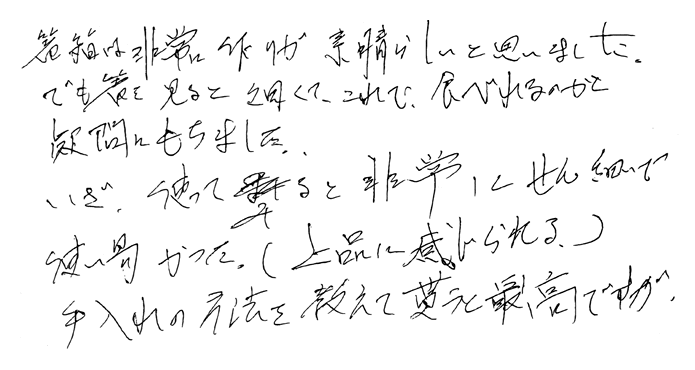 箸箱は非常に作りが素晴らしいと思いました。
でも箸を見ると細くて、これで、食べれるのかと
疑問にもちました。
いざ、使って見ると非常にせん細で
使い易かった。(上品に感じられる。)
手入れの方法を教えて貰うと最高ですが、